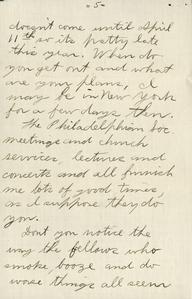 - 5 -
doesn't come until April
11th so its pretty late
this year. When do
you get out and what
are your plans, I
may be in New York
for a few days then.
The Philadelphian Soc.
meetings and church
services, lectures and
concerts and all furnish
me lots of good times,
as I suppose they do
you.
Dont you notice the
way the fellows who
smoke, booze and do
worse things all seem